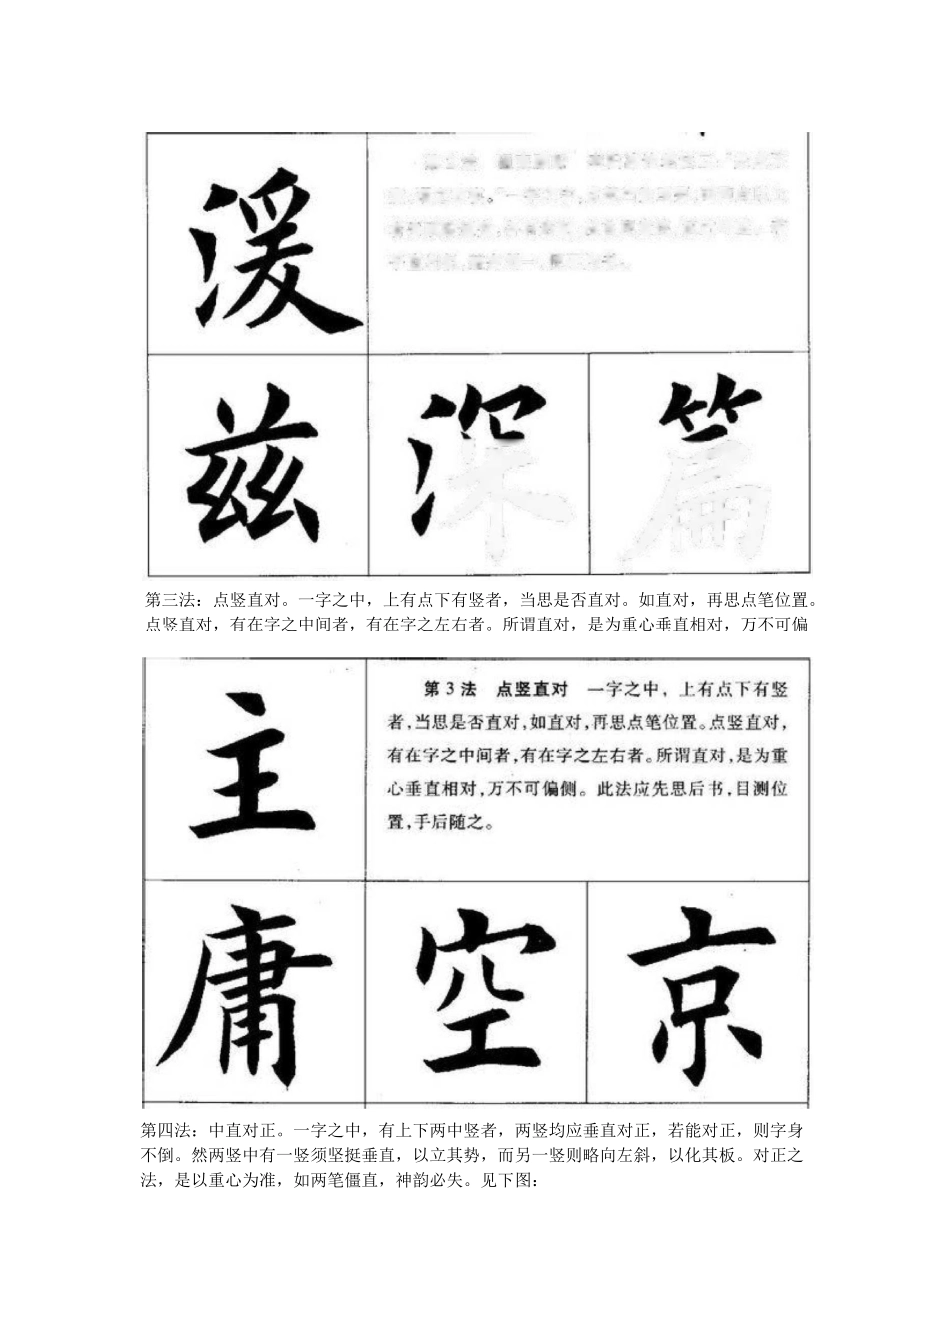 湲
兹 深 篇
第三法：点竖直对。一字之中，上有点下有竖者，当思是否直对。如直对，再思点笔位置。
点竖直对，有在字之中间者，有在字之左右者。所谓直对，是为重心垂直相对，万不可偏
主
第 3 法 点竖直对 一字之中，上有点下有竖
者，当思是否直对，如直对，再思点笔位置。点竖直对，
有在字之中间者，有在字之左右者。所谓直对，是为重
心垂直相对，万不可偏侧。此法应先思后书，目测位
置，手后随之。
庸 空 京
第四法：中直对正。一字之中，有上下两中竖者，两竖均应垂直对正，若能对正，则字身
不倒。然两竖中有一竖须坚挺垂直，以立其势，而另一竖则略向左斜，以化其板。对正之
法，是以重心为准，如两笔僵直，神韵必失。见下图：